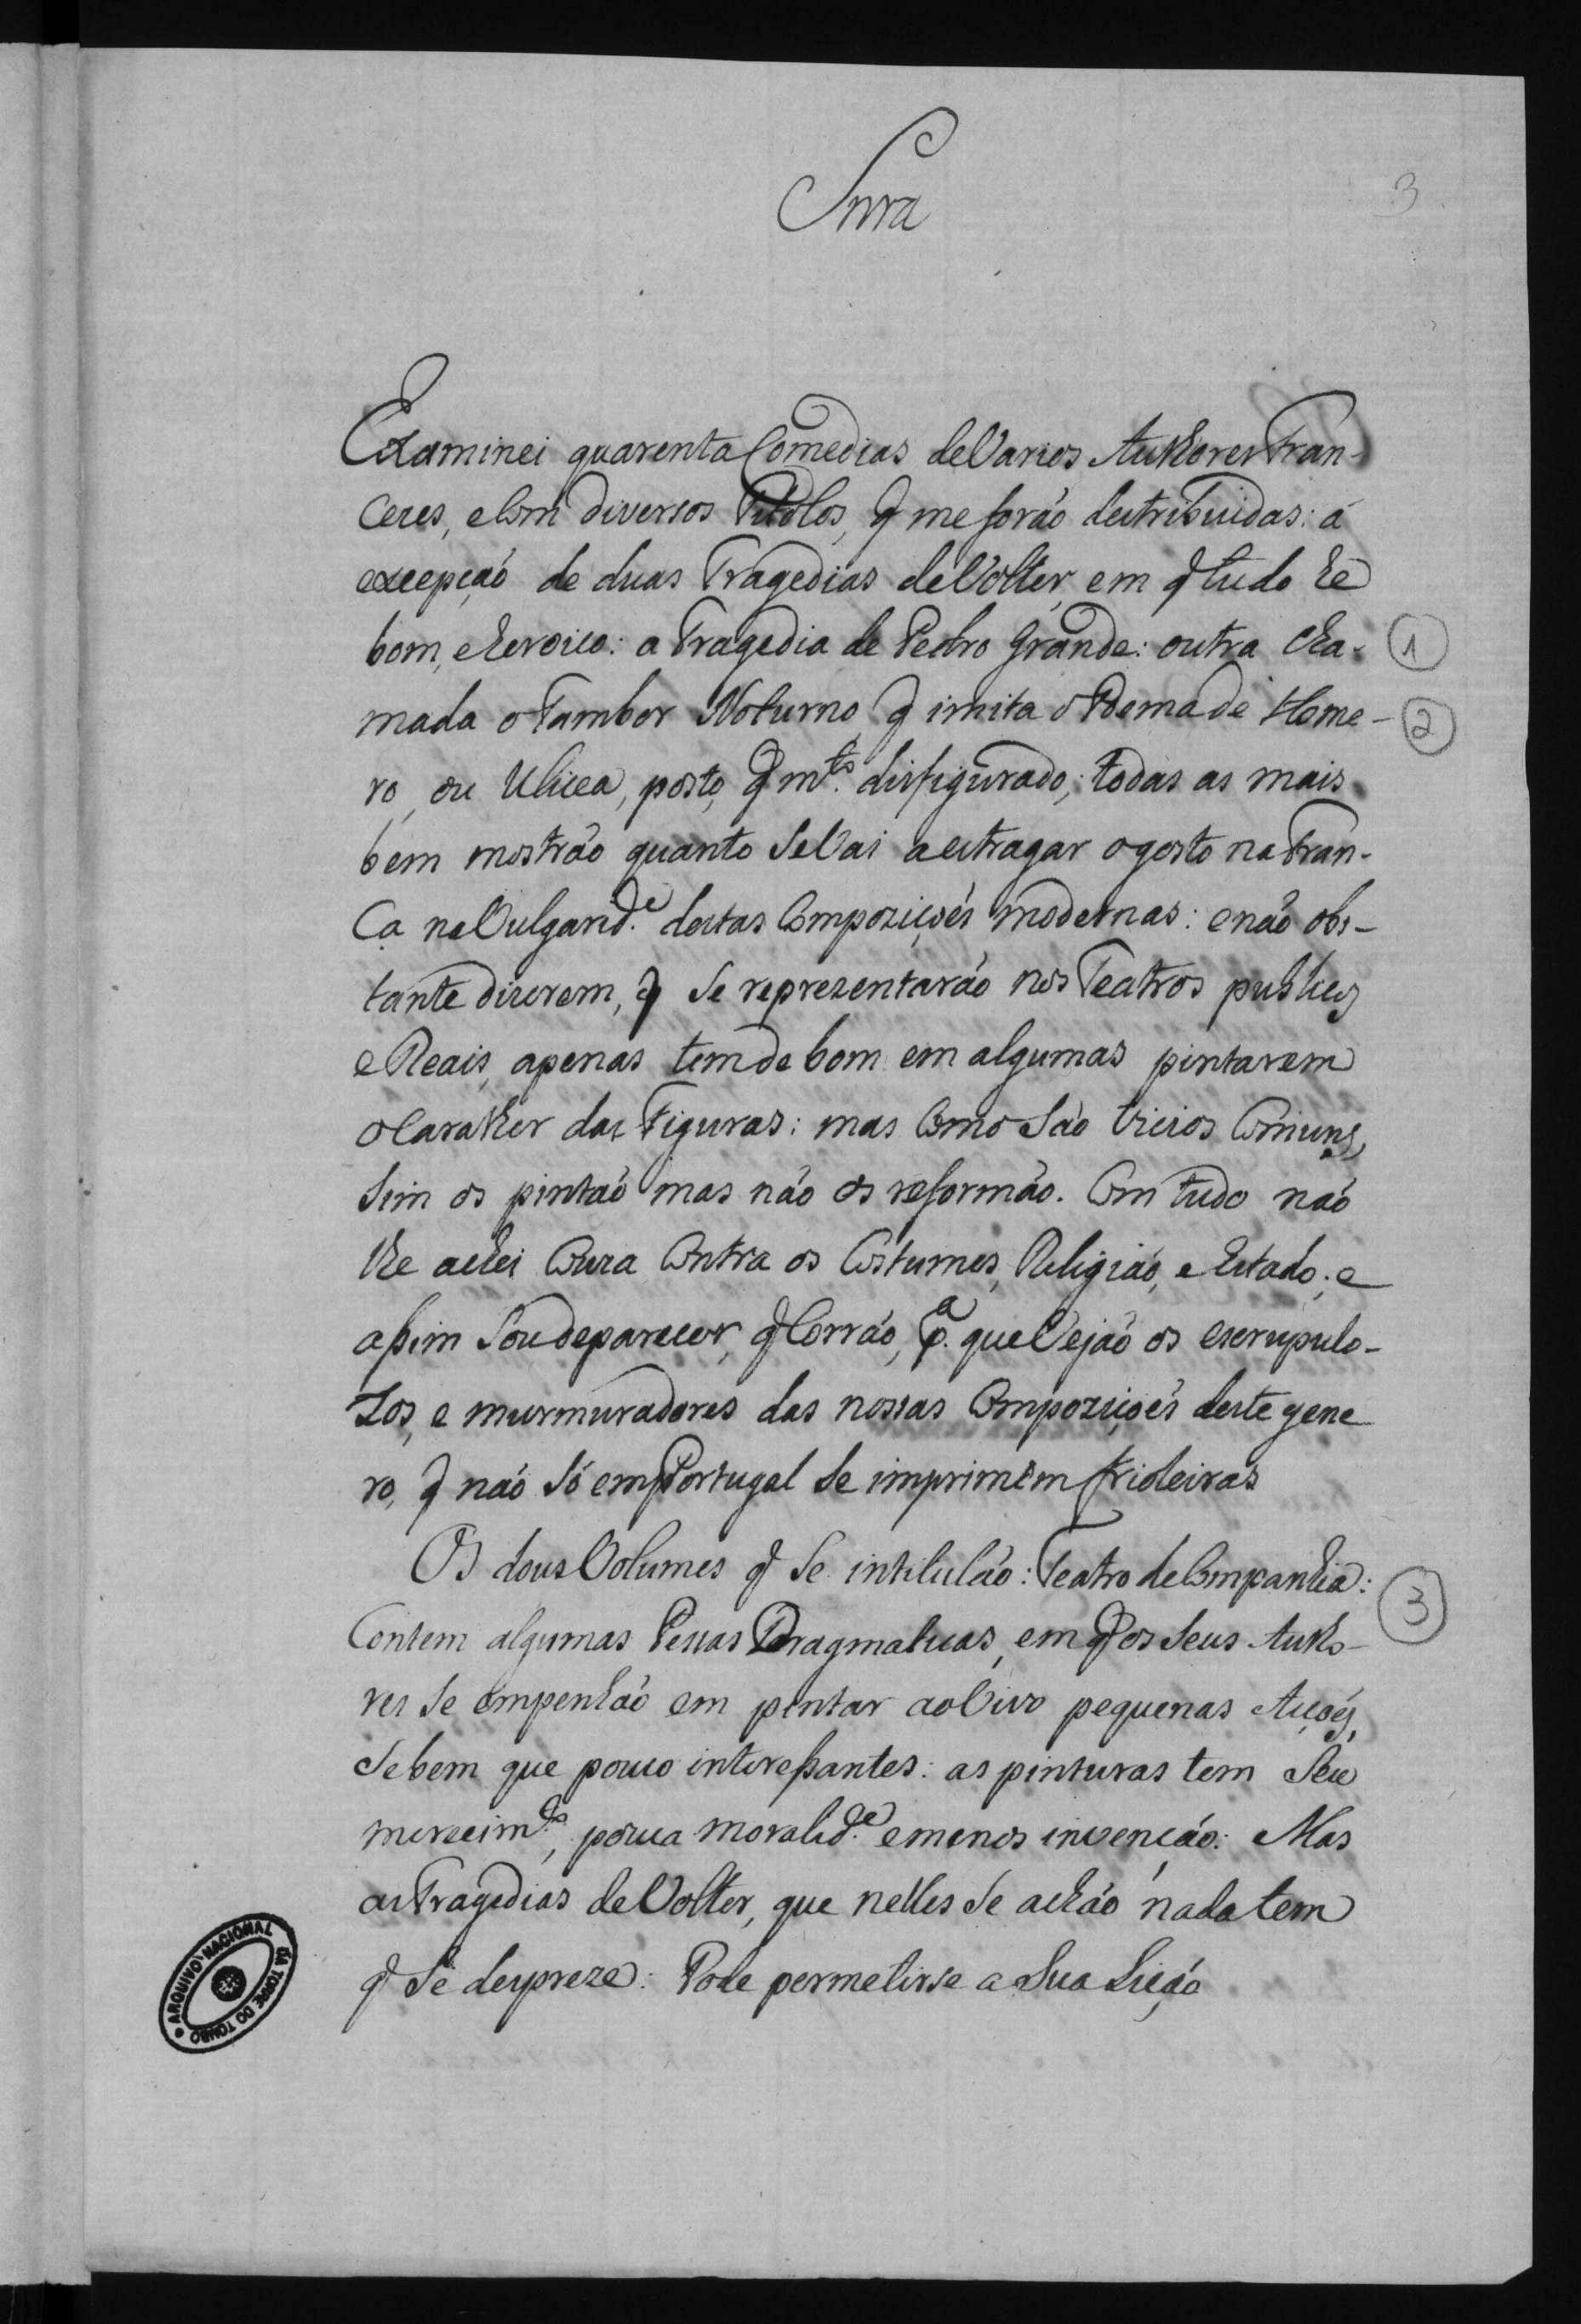 Snra
3
Examinei quarenta Comedias de Varios Authores Fran-
cezes, e com diversos Titolos, q̃ me forão destribuidas: á
excepção de duas Tragedias de Volter, em q̃ tudo hé
bom, e heroico: a Tragedia de Pedro Grande: outra cha-
1
mada o Tambor Noturno, q̃ imita o Poema de Home-
2
ro, ou Ulicea, posto q̃ m.to disfigurado; todas as mais
bem mostrão quanto se Vai a estragar o gosto na Fran-
ça na Vulgarid.e destas Compoziçoés modernas: e não obs-
tante dizerem, q̃ se reprezentarão nos Teatros publicos
e Reais, apenas tem de bom em algumas pintarem
o Carather das Figuras: mas Como são Vicios Comuns,
sim os pintaó mas não os reformão. Com tudo naó
lhe achei Couza Contra os Costumes, Religião, e Estado; e
assim sou de parecer, q̃ Corrão, p.a que Vejão os escrupulo-
zos, e murmuradores das nossas Compoziçoẽs deste gene
ro, q̃ não só em Portugal se imprimem frioleiras
Os dous Volumes q̃ se intitulão: Teatro de Companhia:
3
Contem algumas Pessas Dragmaticas, em q̃ os seus Autho-
res se empenhão em pintar ao Vivo pequenas Açoés,
se bem que pouco interessantes: as pinturas tem seu
merecim.to, pouca moralid.e e menos invenção: Mas
as Tragedias de Volter, que nelles se achão nada tem
q̃ se despreze: Pode permetirse a sua Lição
ARQUIVO NACIONAL DA TORRE DO TOMBO